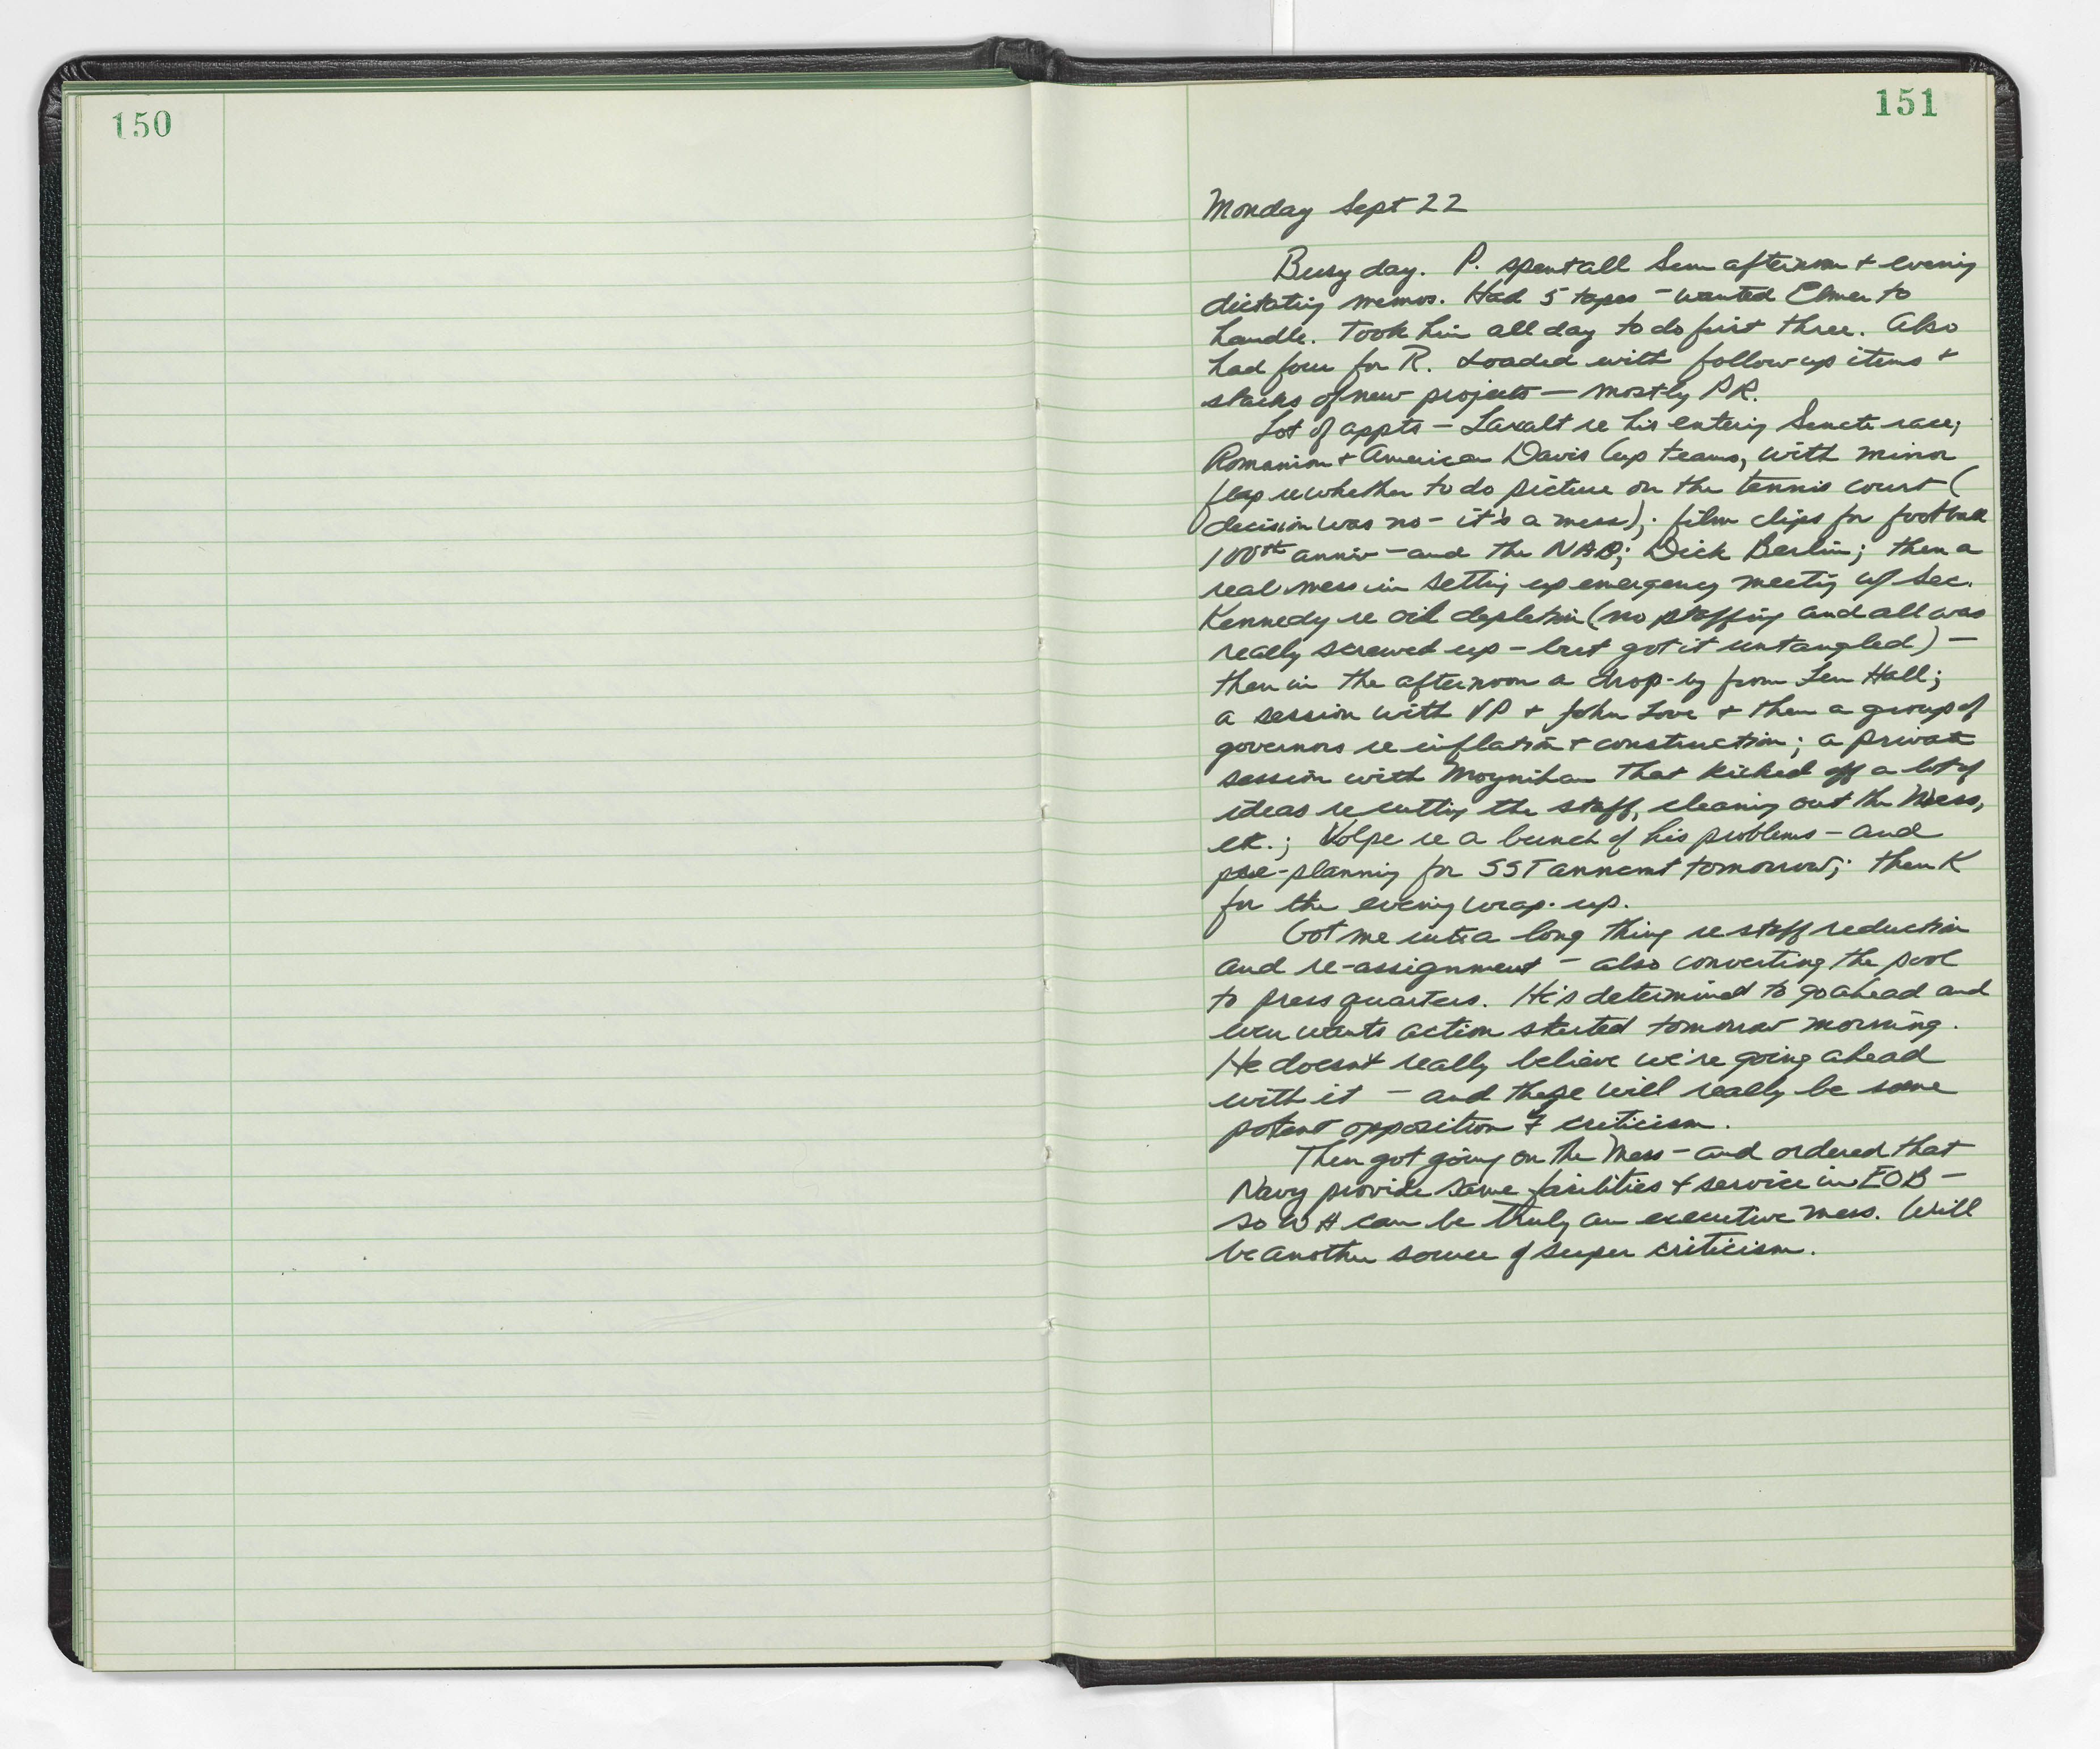 150
151
Monday Sept 22
Busy day. P. spent all Sun afternoon + evening
dictating memos. Had 5 tapes - wanted Elmer to
handle. Took him all day to do first three. Also
had four for R. Loaded with follow up items +
stacks of new projects — mostly PR.
Lot of appts - Laxalt re his entering Senate race;
Romanian + American Davis Cup teams, with minor
flap re whether to do picture on the tennis court (
decision was no - it's a mess); film clips for football
100th anniv - and the NAB; Dick Berlin; then a
real mess in setting up emergency meeting w/ Sec.
Kennedy re oil depletion (no staffing and all was
really screwed up - but got it untangled) -
then in the afternoon a drop-by from Len Hall;
a session with VP + John Love + then a group of
governors re inflation + construction; a private
session with Moynihan that kicked off a lot of
ideas re cutting the staff, cleaning out the Mess,
etc.; Volpe re a bunch of his problems - and
pre-planning for SST anncmt tomorrow; then K
for the evening wrap-up.
Got me into a long thing re staff reduction
and re-assignment - also converting the pool
to press quarters. He's determined to go ahead and
even wants action started tomorrow morning.
He doesn't really believe we're going ahead
with it - and there will really be some
potent opposition & criticism.
Then got going on the Mess - and ordered that
Navy provide same facilities & service in EOB -
so WH can be truly an executive mess. Will
be another source of super criticism.